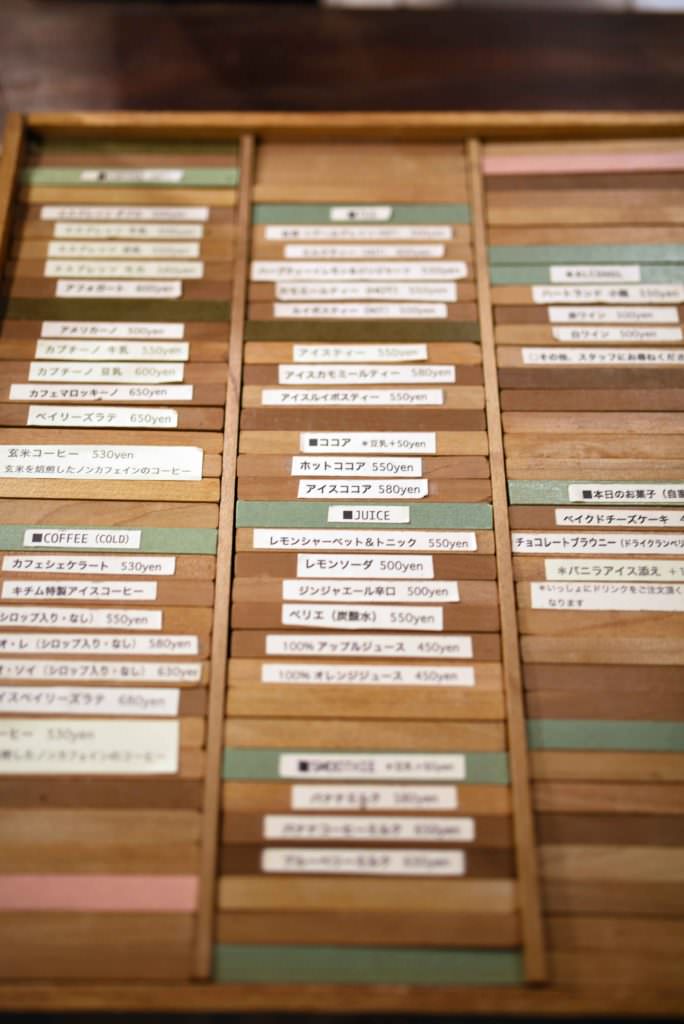 アフォガート 600yen
アメリカーノ 500yen
カプチーノ 牛乳 550yen
カプチーノ 豆乳 600yen
カフェマロッキーノ 650yen
ベイリーズラテ 650yen
玄米コーヒー 530yen
玄米を焙煎したノンカフェインのコーヒー
■COFFEE (COLD)
カフェシェケラート 530yen
キチム特製アイスコーヒー
シロップ入り・なし) 550yen
オ・レ (シロップ入り・なし) 580yen
オ・ソイ (シロップ入り・なし) 630yen
イスベイリーズラテ 680yen
コーヒー 530yen
煎したノンカフェインのコーヒー
カモミールティー (HOT) 550yen
ルイボスティー (HOT) 500yen
アイスティー 550yen
アイスカモミールティー 580yen
アイスルイボスティー 550yen
■ココア ＊豆乳+50yen
ホットココア 550yen
アイスココア 580yen
■JUICE
レモンシャーベット&トニック 550yen
レモンソーダ 500yen
ジンジャエール辛口 500yen
ペリエ (炭酸水) 550yen
100%アップルジュース 450yen
100%オレンジジュース 450yen
■SMOOTHIE ＊豆乳+50yen
バナナミルク
バナナコーヒーミルク
ブルーベリーミルク
■ALCOHOL
ハートランド 小瓶 550yen
赤ワイン 500yen
白ワイン 500yen
○その他、スタッフにお尋ねくださ
■本日のお菓子 (自家
ベイクドチーズケーキ 4
チョコレートブラウニー (ドライクランベリ
＊バニラアイス添え +1
＊いっしょにドリンクをご注文頂く
なります